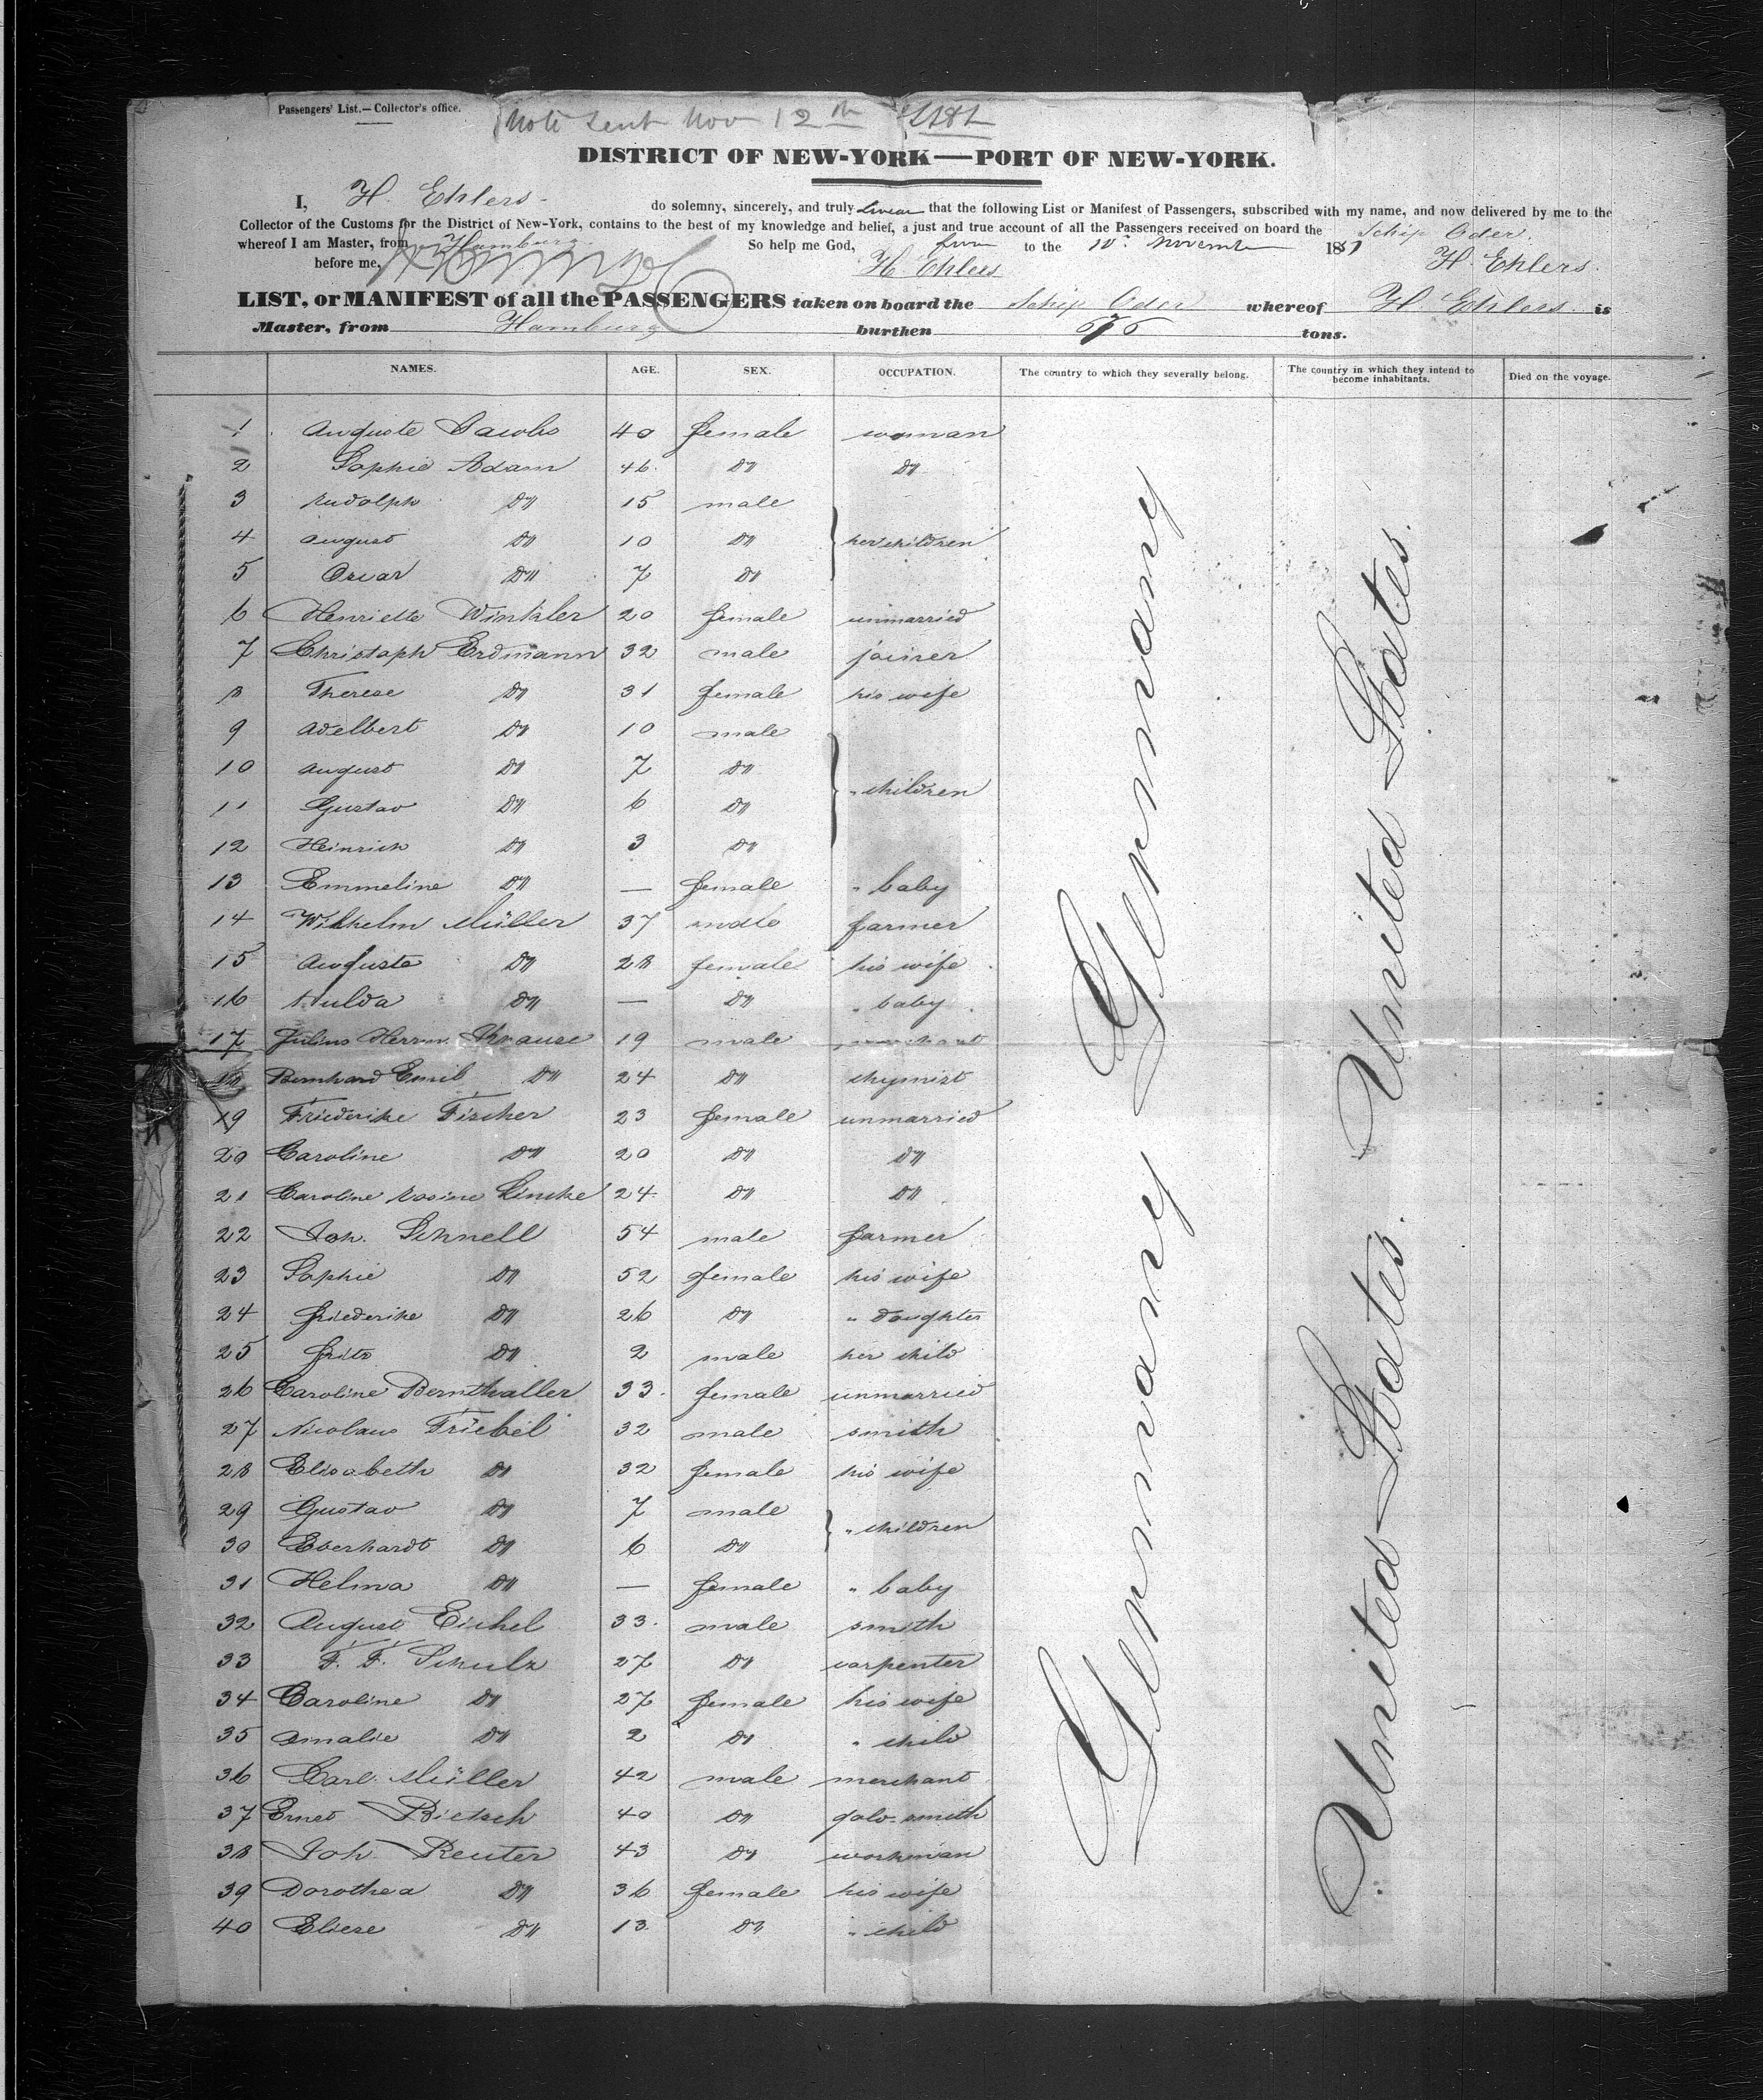 Passengers' List.—Collector's office.
Note sent Nov 12th
DISTRICT OF NEW-YORK—PORT OF NEW-YORK.
I, H. Ehlers do solemny, sincerely, and truly swear that the following List or Manifest of Passengers, subscribed with my name, and now delivered by me to the
Collector of the Customs for the District of New-York, contains to the best of my knowledge and belief, a just and true account of all the Passengers received on board the Schip Oder.
whereof I am Master, from Hamburg. So help me God, to the 10. November 1851 H. Ehlers.
before me, H. Ehlers
LIST, or MANIFEST of all the PASSENGERS taken on board the Schip Oder whereof H. Ehlers is
Master, from Hamburg burthen tons.
NAMES. AGE. SEX. OCCUPATION. The country to which they severally belong. The country in which they intend to become inhabitants. Died on the voyage.
1 Auguste Jacobs 40 female woman
2 Sophie Adam 46 Do Do
3 Rudolph Do 15 male
4 August Do 10 Do her children
5 Oscar Do 7 Do
6 Henriette Winkler 20 female unmarried
7 Christoph Erdmann 32 male joiner
8 Therese Do 31 female his wife
9 Adelbert Do 10 male
10 August Do 7 Do
" children
11 Gustav Do 6 Do
12 Heinrich Do 3 Do
13 Emmeline Do — female " baby
14 Wilhelm Müller 37 male farmer
15 Auguste Do 28 female his wife
16 Hulda Do — Do " baby
17 Julius Herrm. Krause 19 male merchant
18 Bernhard Emil Do 24 Do chymist
19 Friederike Fischer 23 female unmarried
20 Caroline Do 20 Do Do
21 Caroline Rosine Lincke 24 Do Do
22 Joh. Schnell 54 male farmer
23 Sophie Do 52 female his wife
24 Friederike Do 26 Do " daughter
25 Fritz Do 2 male her child
26 Caroline Bernthaller 33 female unmarried
27 Nicolaus Friebel 32 male smith
28 Elisabeth Do 32 female his wife
29 Gustav Do 7 male
" children
30 Eberhardt Do 6 Do
31 Helma Do — female " baby
32 August Eichel 33 male smith
33 F. F. Schulz 27 Do carpenter
34 Caroline Do 27 female his wife
35 Amalie Do 2 Do " child
36 Carl Müller 42 male merchant
37 Ernst Bietsch 40 Do gold-smith
38 Joh. Reuter 43 Do workman
39 Dorothea Do 36 female his wife
40 Eliese Do 13 Do " child
Germany Germany Germany
United States. United States.